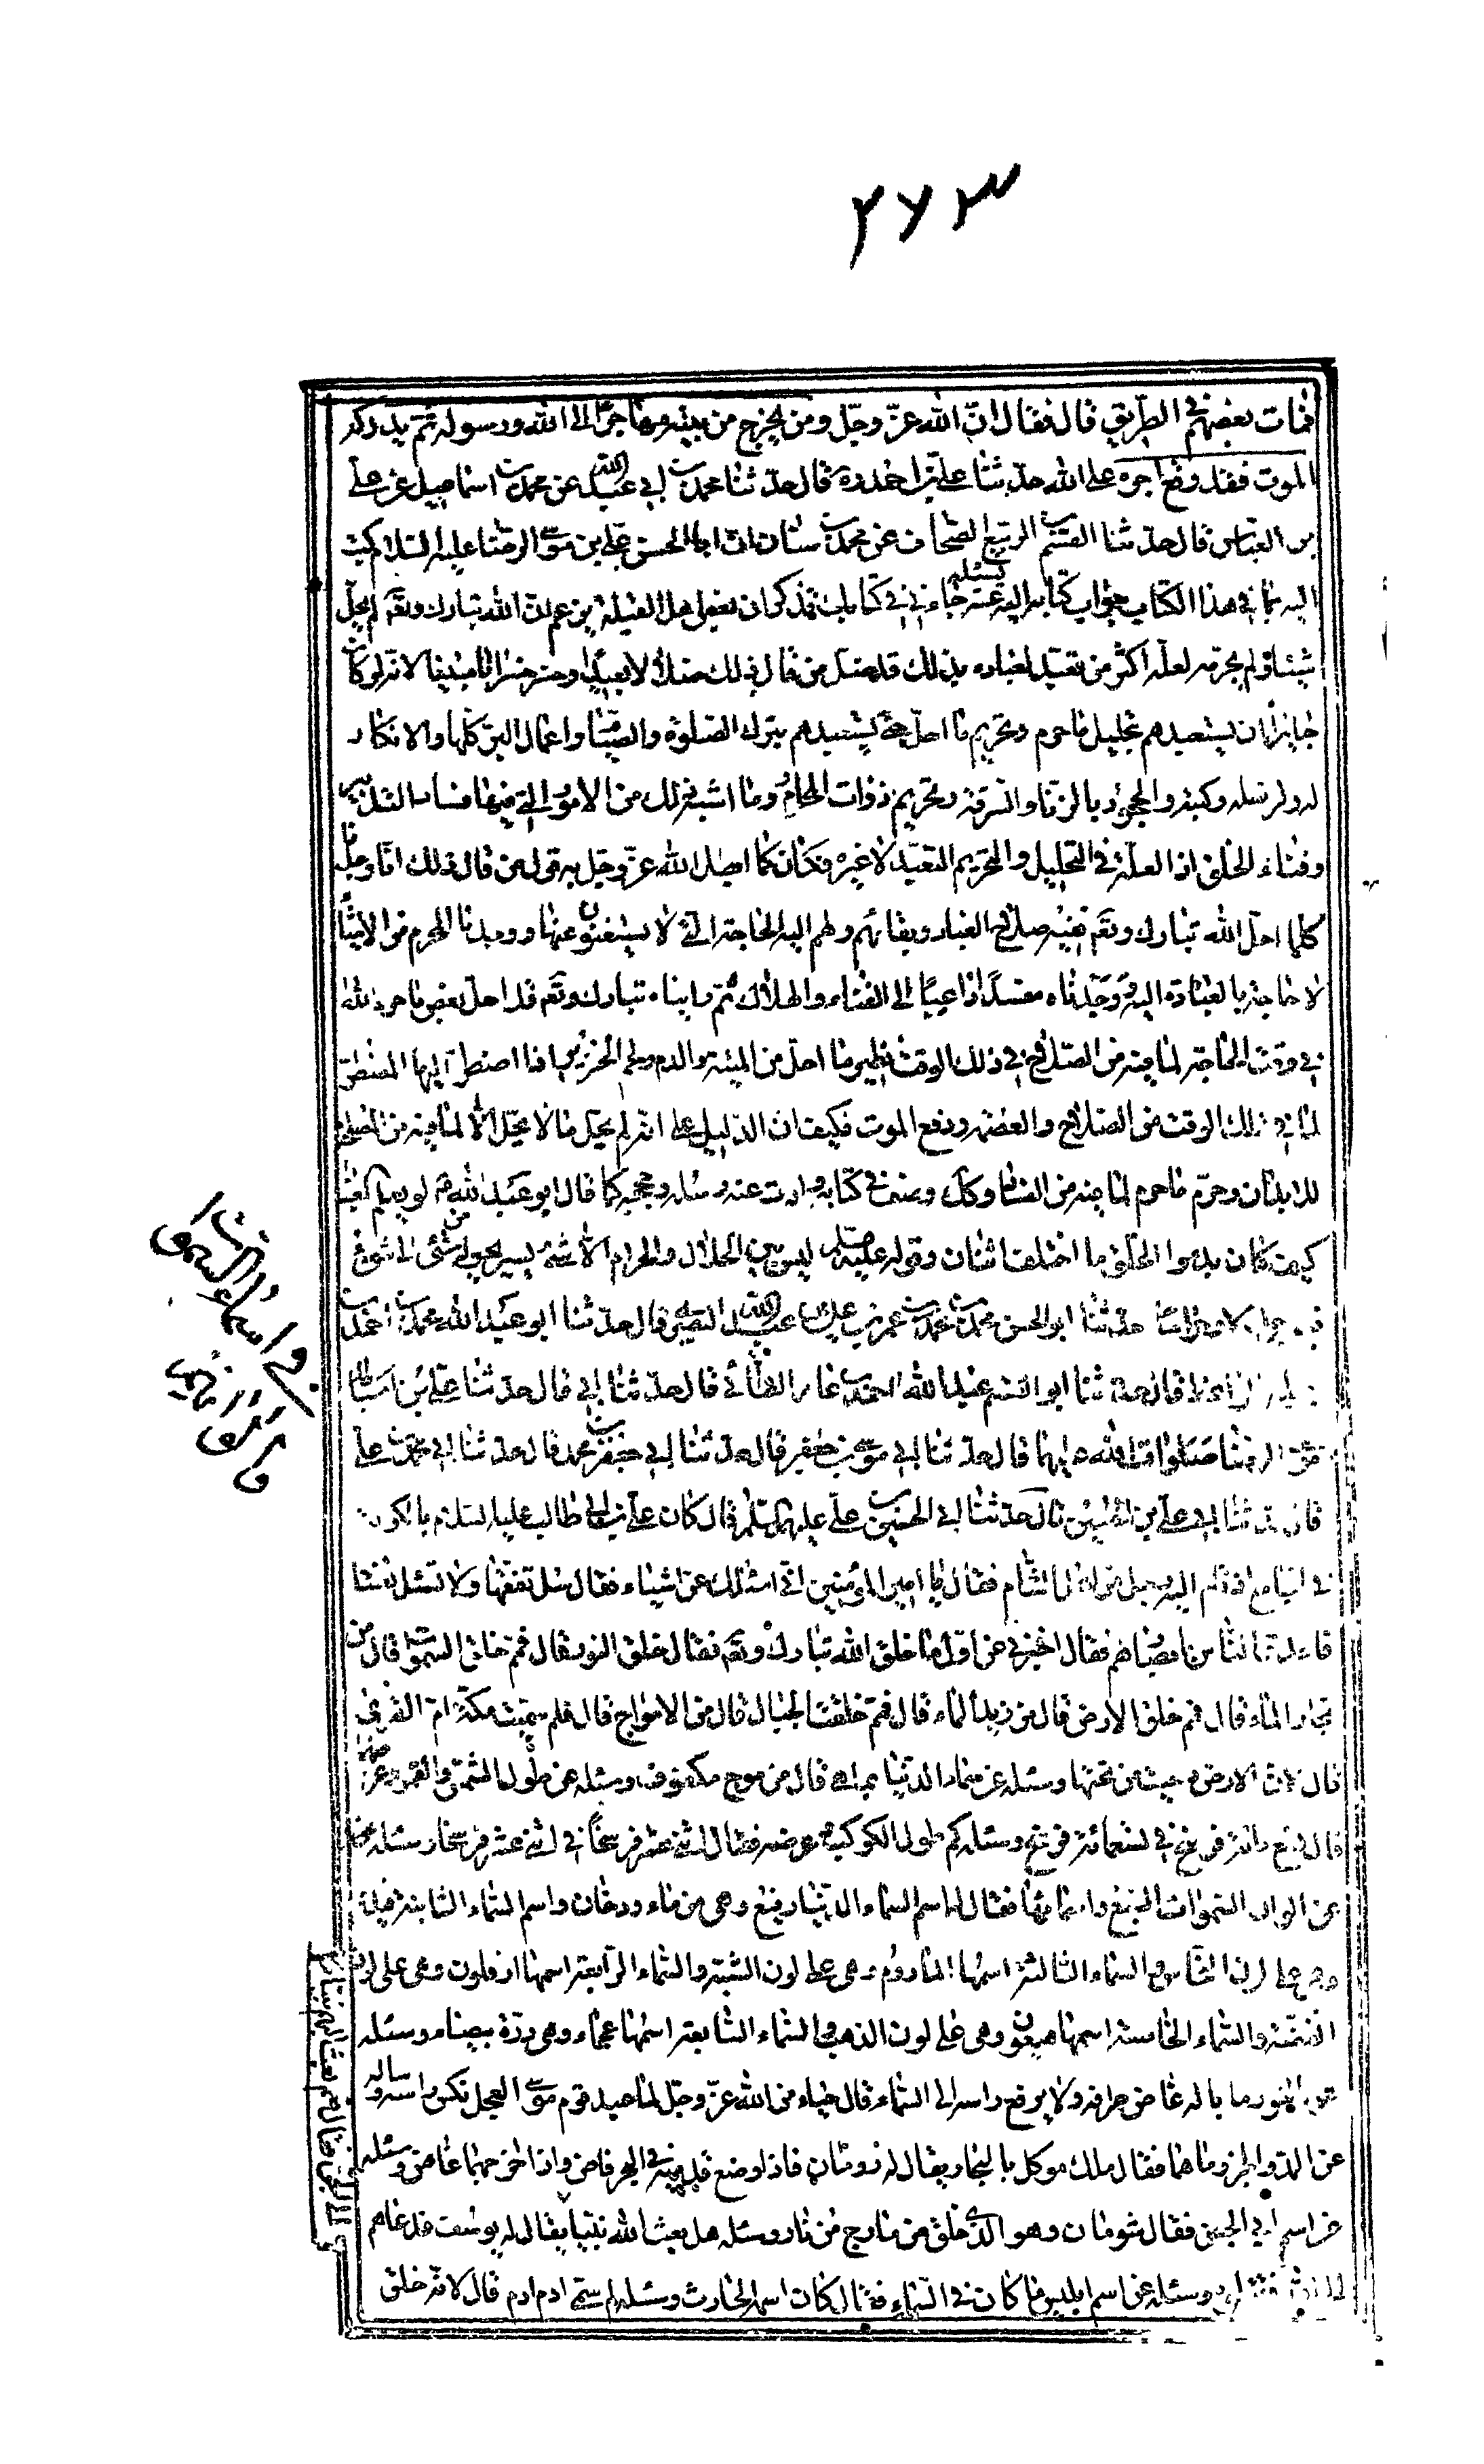 ۲۷۳
فمات بعضهم في الطريق قال فقال ان الله عز وجل ومن يخرج من بيته مهاجرا الى الله ورسوله ثم يدركه
الموت فقد وقع اجره على الله حدثنا علي بن احمد ره قال حدثنا محمد بن ابي عبد الله عن محمد بن اسماعيل عن علي
بن العباس قال حدثنا القسم بن الربيع الصحاف عن محمد بن سنان ان ابا الحسن علي بن موسى الرضا عليه السلام كتب
اليه بما في هذا الكتاب جواب كتابه اليه يسئله عنه جاءني كتابك تذكر ان بعض اهل القبلة يزعم ان الله تبارك وتعم لم يحل
شيئا ولم يحرمه لعلة اكثر من تعبد لعباده بذلك قد ضل من قال ذلك ضلالا بعيدا وخسر خسرانا مبينا لانه لو كان
جايزا ان يستعبدهم بتحليل ما حرم وتحريم ما احل حتى يستعبدهم بترك الصلوة والصيام واعمال البر كلها والانكار
له ولرسله وكتبه والجحود بالزنا والسرقة وتحريم ذوات المحارم وما اشبه ذلك من الامور التي فيها فساد التدبير
وفناء الخلق اذ العلة في التحليل والتحريم التعبد لا غيره فكان كما ابطل الله عز وجل به قول من قال ذلك انا وجدنا
كلما احل الله تبارك وتعم ففيه صلاح العباد وبقائهم ولهم اليه الحاجة التي لا يستغنون عنها ووجدنا المحرم من الاشياء
لا حاجة بالعباد اليه ووجدناه مفسدا داعيا الى الفناء والهلاك ثم رايناه تبارك وتعم قد احل بعض ما حرم الله
في وقت الحاجة لما فيه من الصلاح في ذلك الوقت نظير ما احل من الميتة والدم ولحم الخنزير اذا اضطر اليها المضطر
لما في ذلك الوقت من الصلاح والعصمة ودفع الموت فكيف ان الدليل على انه لم يحل ما لا يحل الا لما فيه من المصلحة
للابدان وحرم ما حرم لما فيه من الفساد وكك وصف في كتابه وادت عنه رسله وحججه كما قال ابو عبد الله ع لو يعلم العباد
كيف كان بدؤ الخلق ما اختلف اثنان وقوله عليه السلام ليس بين الحلال والحرام الا شئ يسير يحوله من شئ الى شئ
حدثنا ابو الحسن محمد بن عمرو بن علي بن عبد الله البصري قال حدثنا ابو عبد الله محمد بن احمد
قال حدثنا ابو القسم عبد الله بن احمد بن عامر الطائي قال حدثنا ابي قال حدثنا علي بن
موسى الرضا صلوات الله عليهما قال حدثنا ابي موسى بن جعفر قال حدثنا ابي جعفر بن محمد قال حدثنا ابي محمد بن علي
قال حدثنا ابي علي بن الحسين قال حدثنا ابي الحسين بن علي عليهم السلم قال كان علي بن ابي طالب عليه السلام بالكوفة
في الجامع اذ قام اليه رجل من اهل الشام فقال يا امير المؤمنين اني اسئلك عن اشياء فقال سل تفقها ولا تسئل تعنتا
فقال اخبرني عن اول ما خلق الله تبارك وتعم فقال خلق النور قال فمم خلق السموات قال من
بخار الماء قال فمم خلق الارض قال من زبد الماء قال فمم خلقت الجبال قال من الامواج قال فلم سميت مكة ام القرى
قال لان الارض دحيت من تحتها وسئله عن سماء الدنيا مما هي قال من موج مكفوف وسئله عن طول الشمس والقمر وعرضهما
قال تسع مائة فرسخ في تسعمائة فرسخ وسئله كم طول الكوكب وعرضه فقال اثنى عشر فرسخا في اثنى عشر فرسخا وسئله
عن الوان السموات السبع واسمائها فقال له اسم السماء الدنيا رفيع وهي من ماء ودخان واسم السماء الثانية
وهي على لون النحاس والسماء الثالثة اسمها الماروم وهي على لون الشبه والسماء الرابعة اسمها ارفلون وهي على لون
الفضة والسماء الخامسة اسمها هيعون وهي على لون الذهب والسماء السابعة اسمها عجماء وهي درة بيضاء وسئله
عن الثور ما باله غاض طرفه ولا يرفع راسه الى السماء قال حياء من الله عز وجل لما عبد قوم موسى العجل نكس راسه وساله
عن المد والجزر ما هما فقال ملك موكل بالبحار يقال له رومان فاذا وضع قدميه في البحر فاض واذا اخرجهما غاض وسئله
عن اسم ابي الجن فقال شومان وهو الذي خلق من مارج من نار وسئله هل بعث الله نبيا
وسئله عن اسم ابليس ما كان في السماء فقال كان اسمه الحارث وسئله لم سمي ادم ادم قال لانه خلق